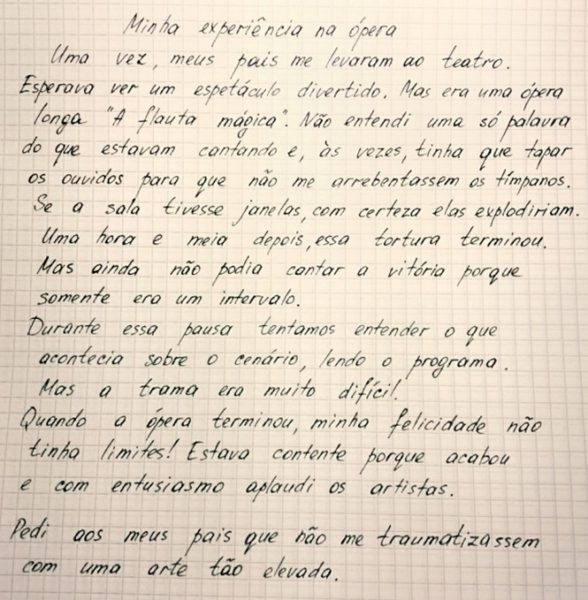 Minha experiência na ópera
Uma vez, meus pais me levaram ao teatro.
Esperava ver um espetáculo divertido. Mas era uma ópera
longa "A flauta mágica". Não entendi uma só palavra
do que estavam cantando e, às vezes, tinha que tapar
os ouvidos para que não me arrebentassem os tímpanos.
Se a sala tivesse janelas, com certeza elas explodiriam.
Uma hora e meia depois, essa tortura terminou.
Mas ainda não podia cantar a vitória porque
somente era um intervalo.
Durante essa pausa tentamos entender o que
acontecia sobre o cenário, lendo o programa.
Mas a trama era muito difícil.
Quando a ópera terminou, minha felicidade não
tinha limites! Estava contente porque acabou
e com entusiasmo aplaudi os artistas.
Pedi aos meus pais que não me traumatizassem
com uma arte tão elevada.